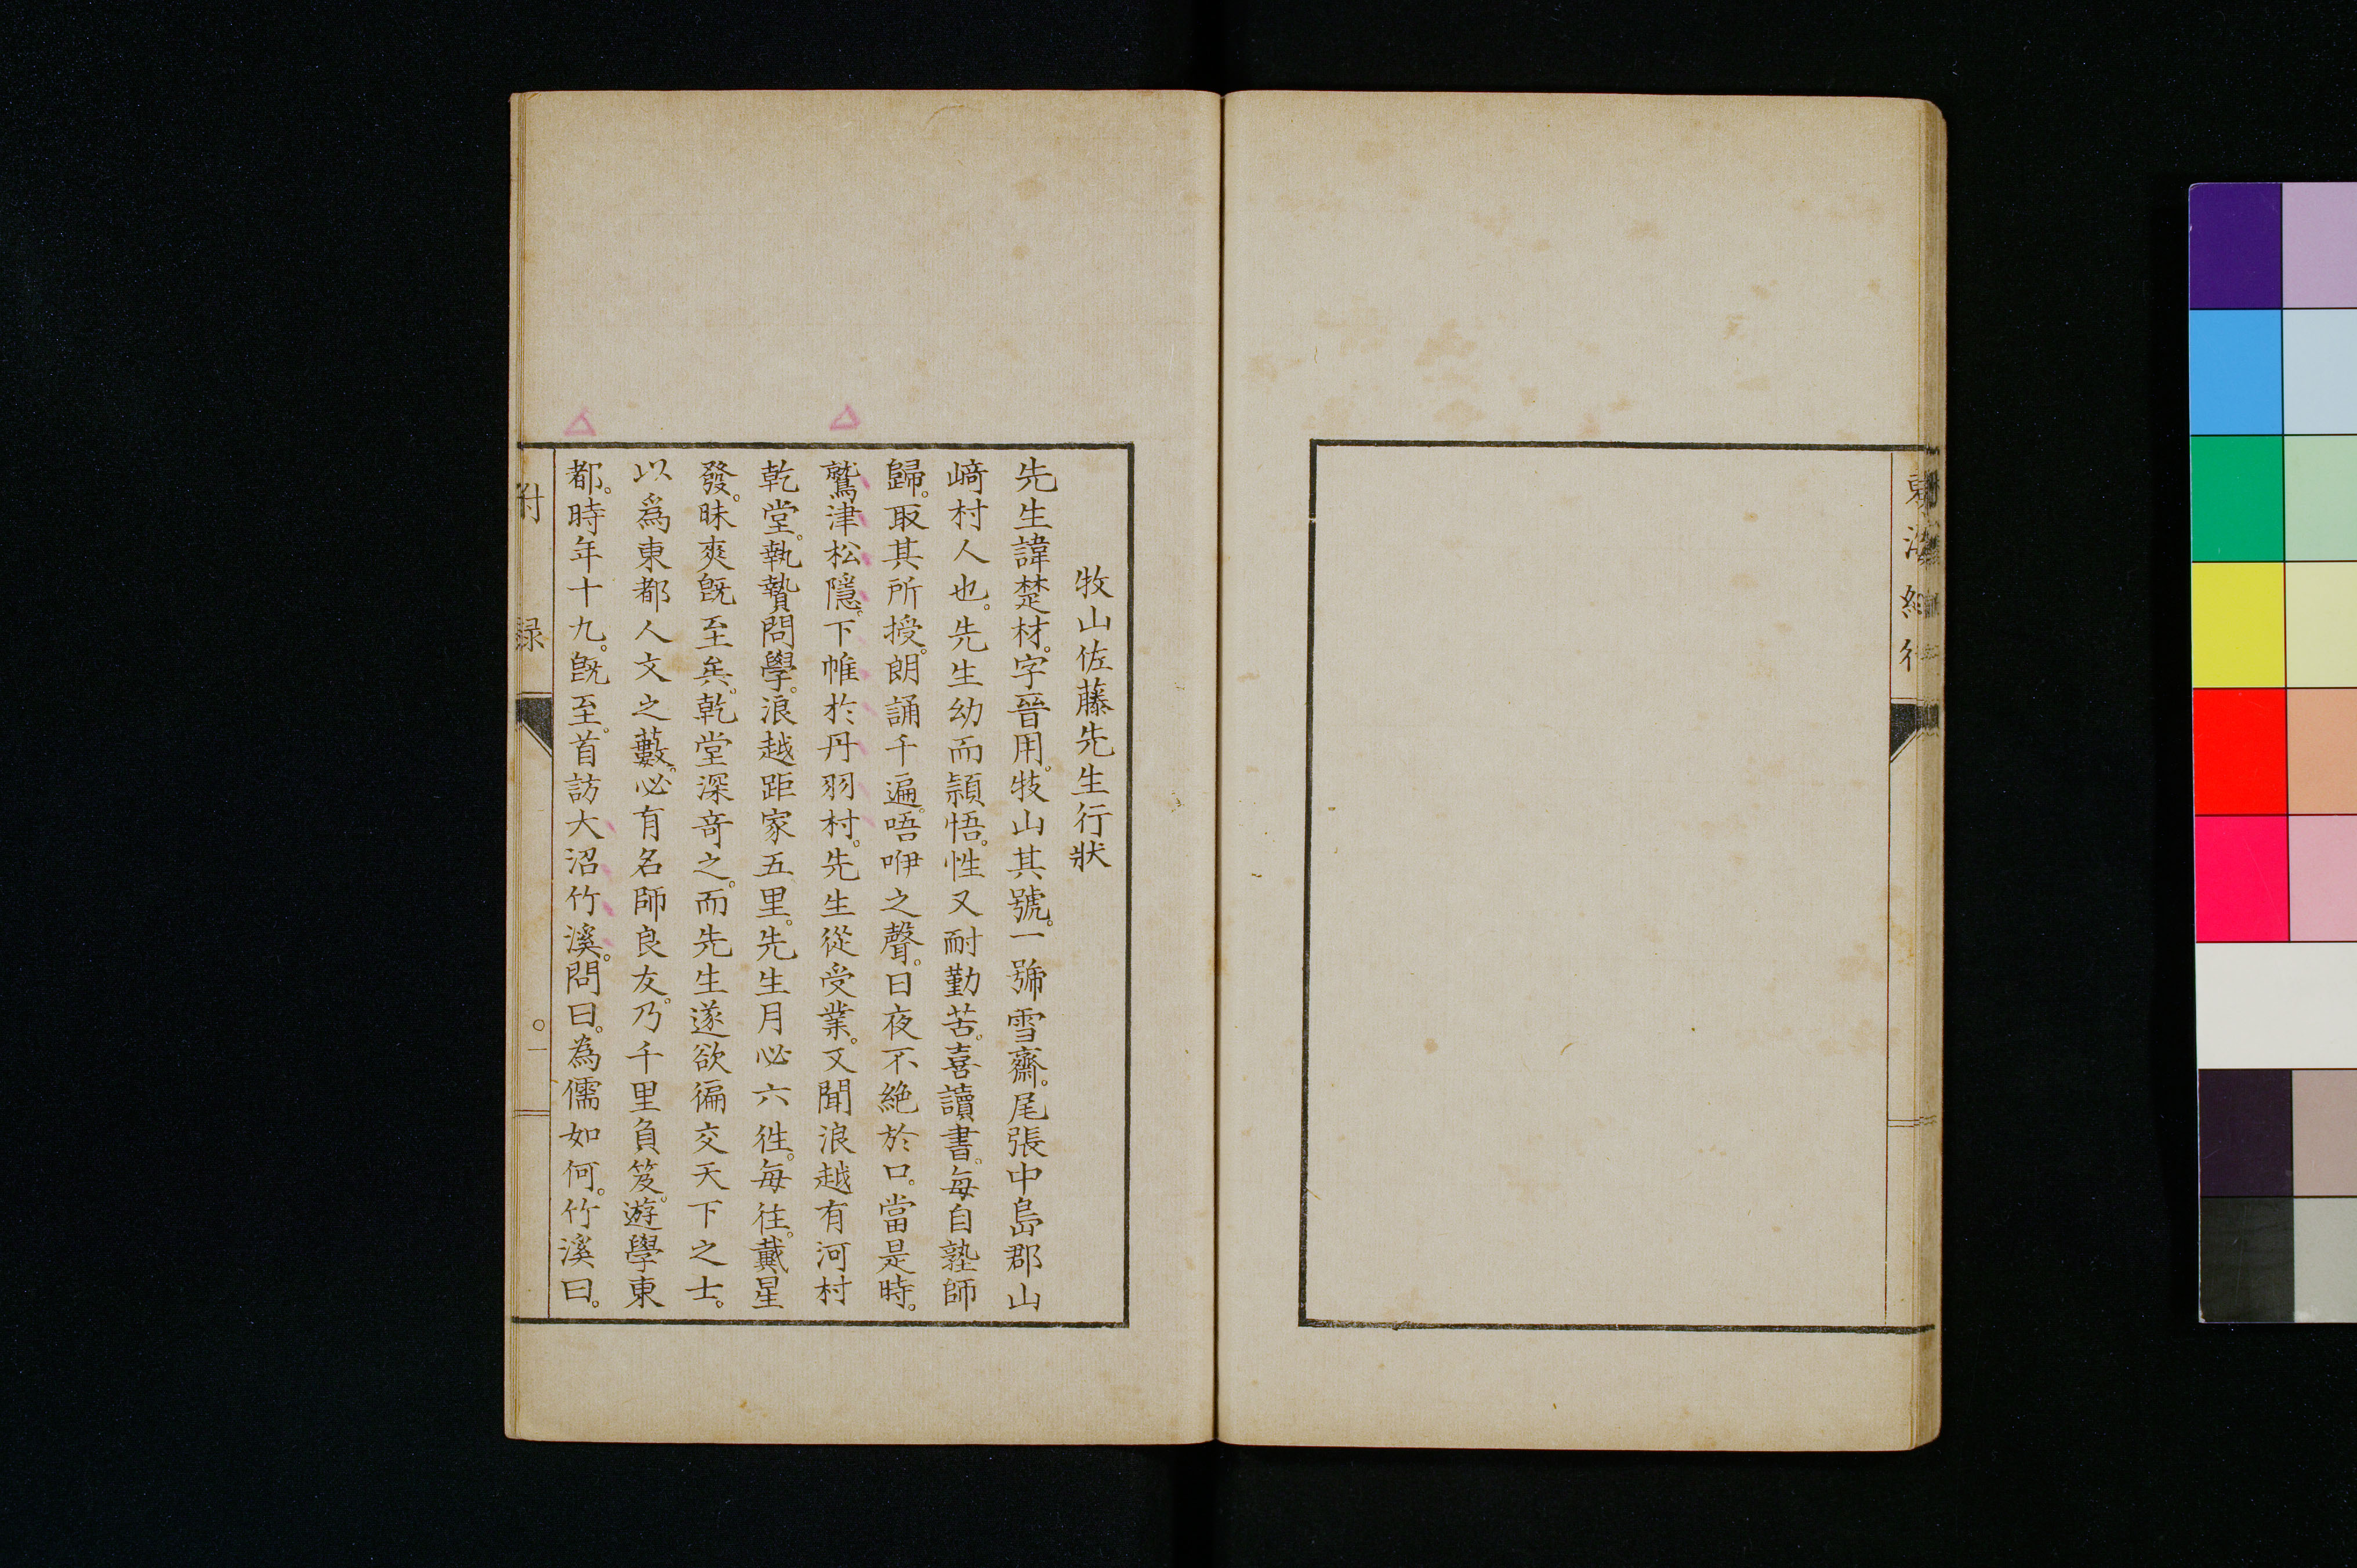 牧山佐藤先生行狀
先生諱楚材。字晉用。牧山其號。一號雪齋。尾張中島郡山
﨑村人也。先生幼而頴悟。性又耐勤苦。喜讀書。每自塾師
歸。取其所授。朗誦千遍。唔咿之聲。日夜不絶於口。當是時。
鷲津松隱。下帷於丹羽村。先生從受業。又聞浪越有河村
乾堂。執贄問學。浪越距家五里。先生月必六徃。每往。戴星
發。昧爽旣至矣。乾堂深奇之。而先生遂欲徧交天下之士。
以爲東都人文之藪。必有名師良友。乃千里負笈。遊學東
都。時年十九。旣至。首訪大沼竹溪。問曰。為儒如何。竹溪曰。
附錄
一